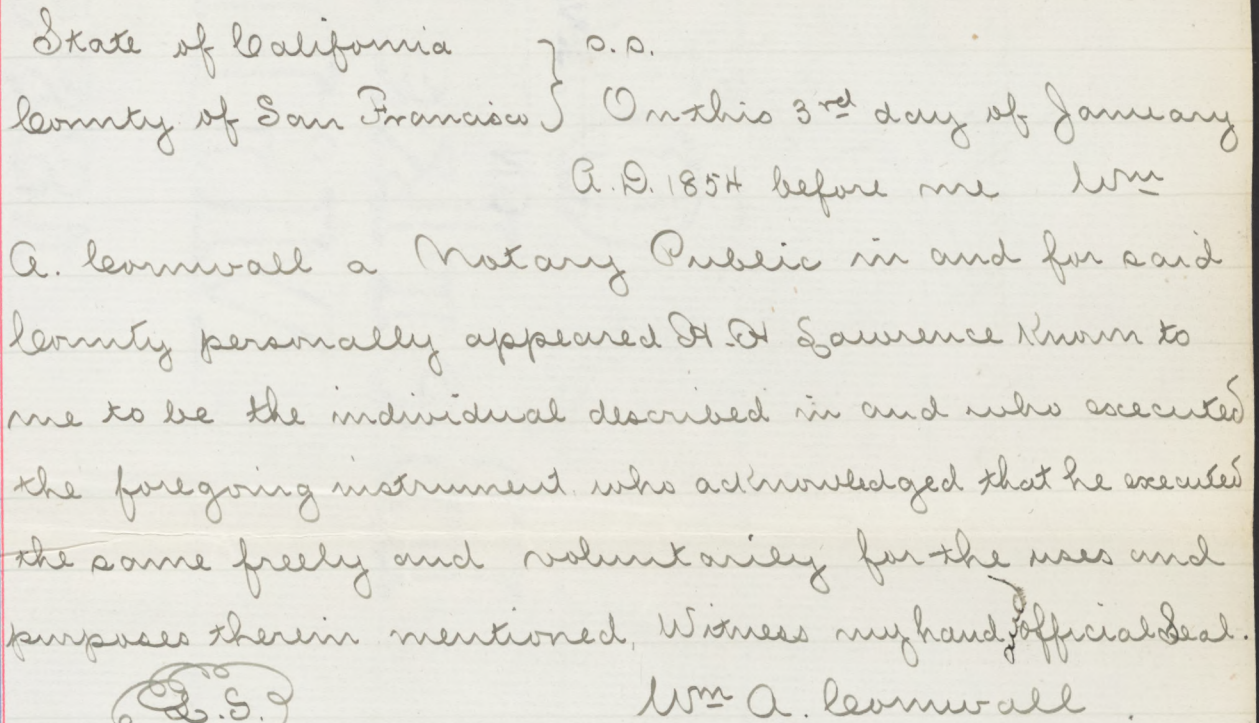 State of California } s.s.
County of San Francisco } On this 3rd day of January
A.D. 1854 before me Wm
A. Cornwall a Notary Public in and for said
County personally appeared H. H Lawrence Known to
me to be the individual described in and who executed
the foregoing instrument who acknowledged that he executed
the same freely and voluntarily for the uses and
purposes therein mentioned, Witness my hand & official Seal.
L.S. Wm A. Cornwall